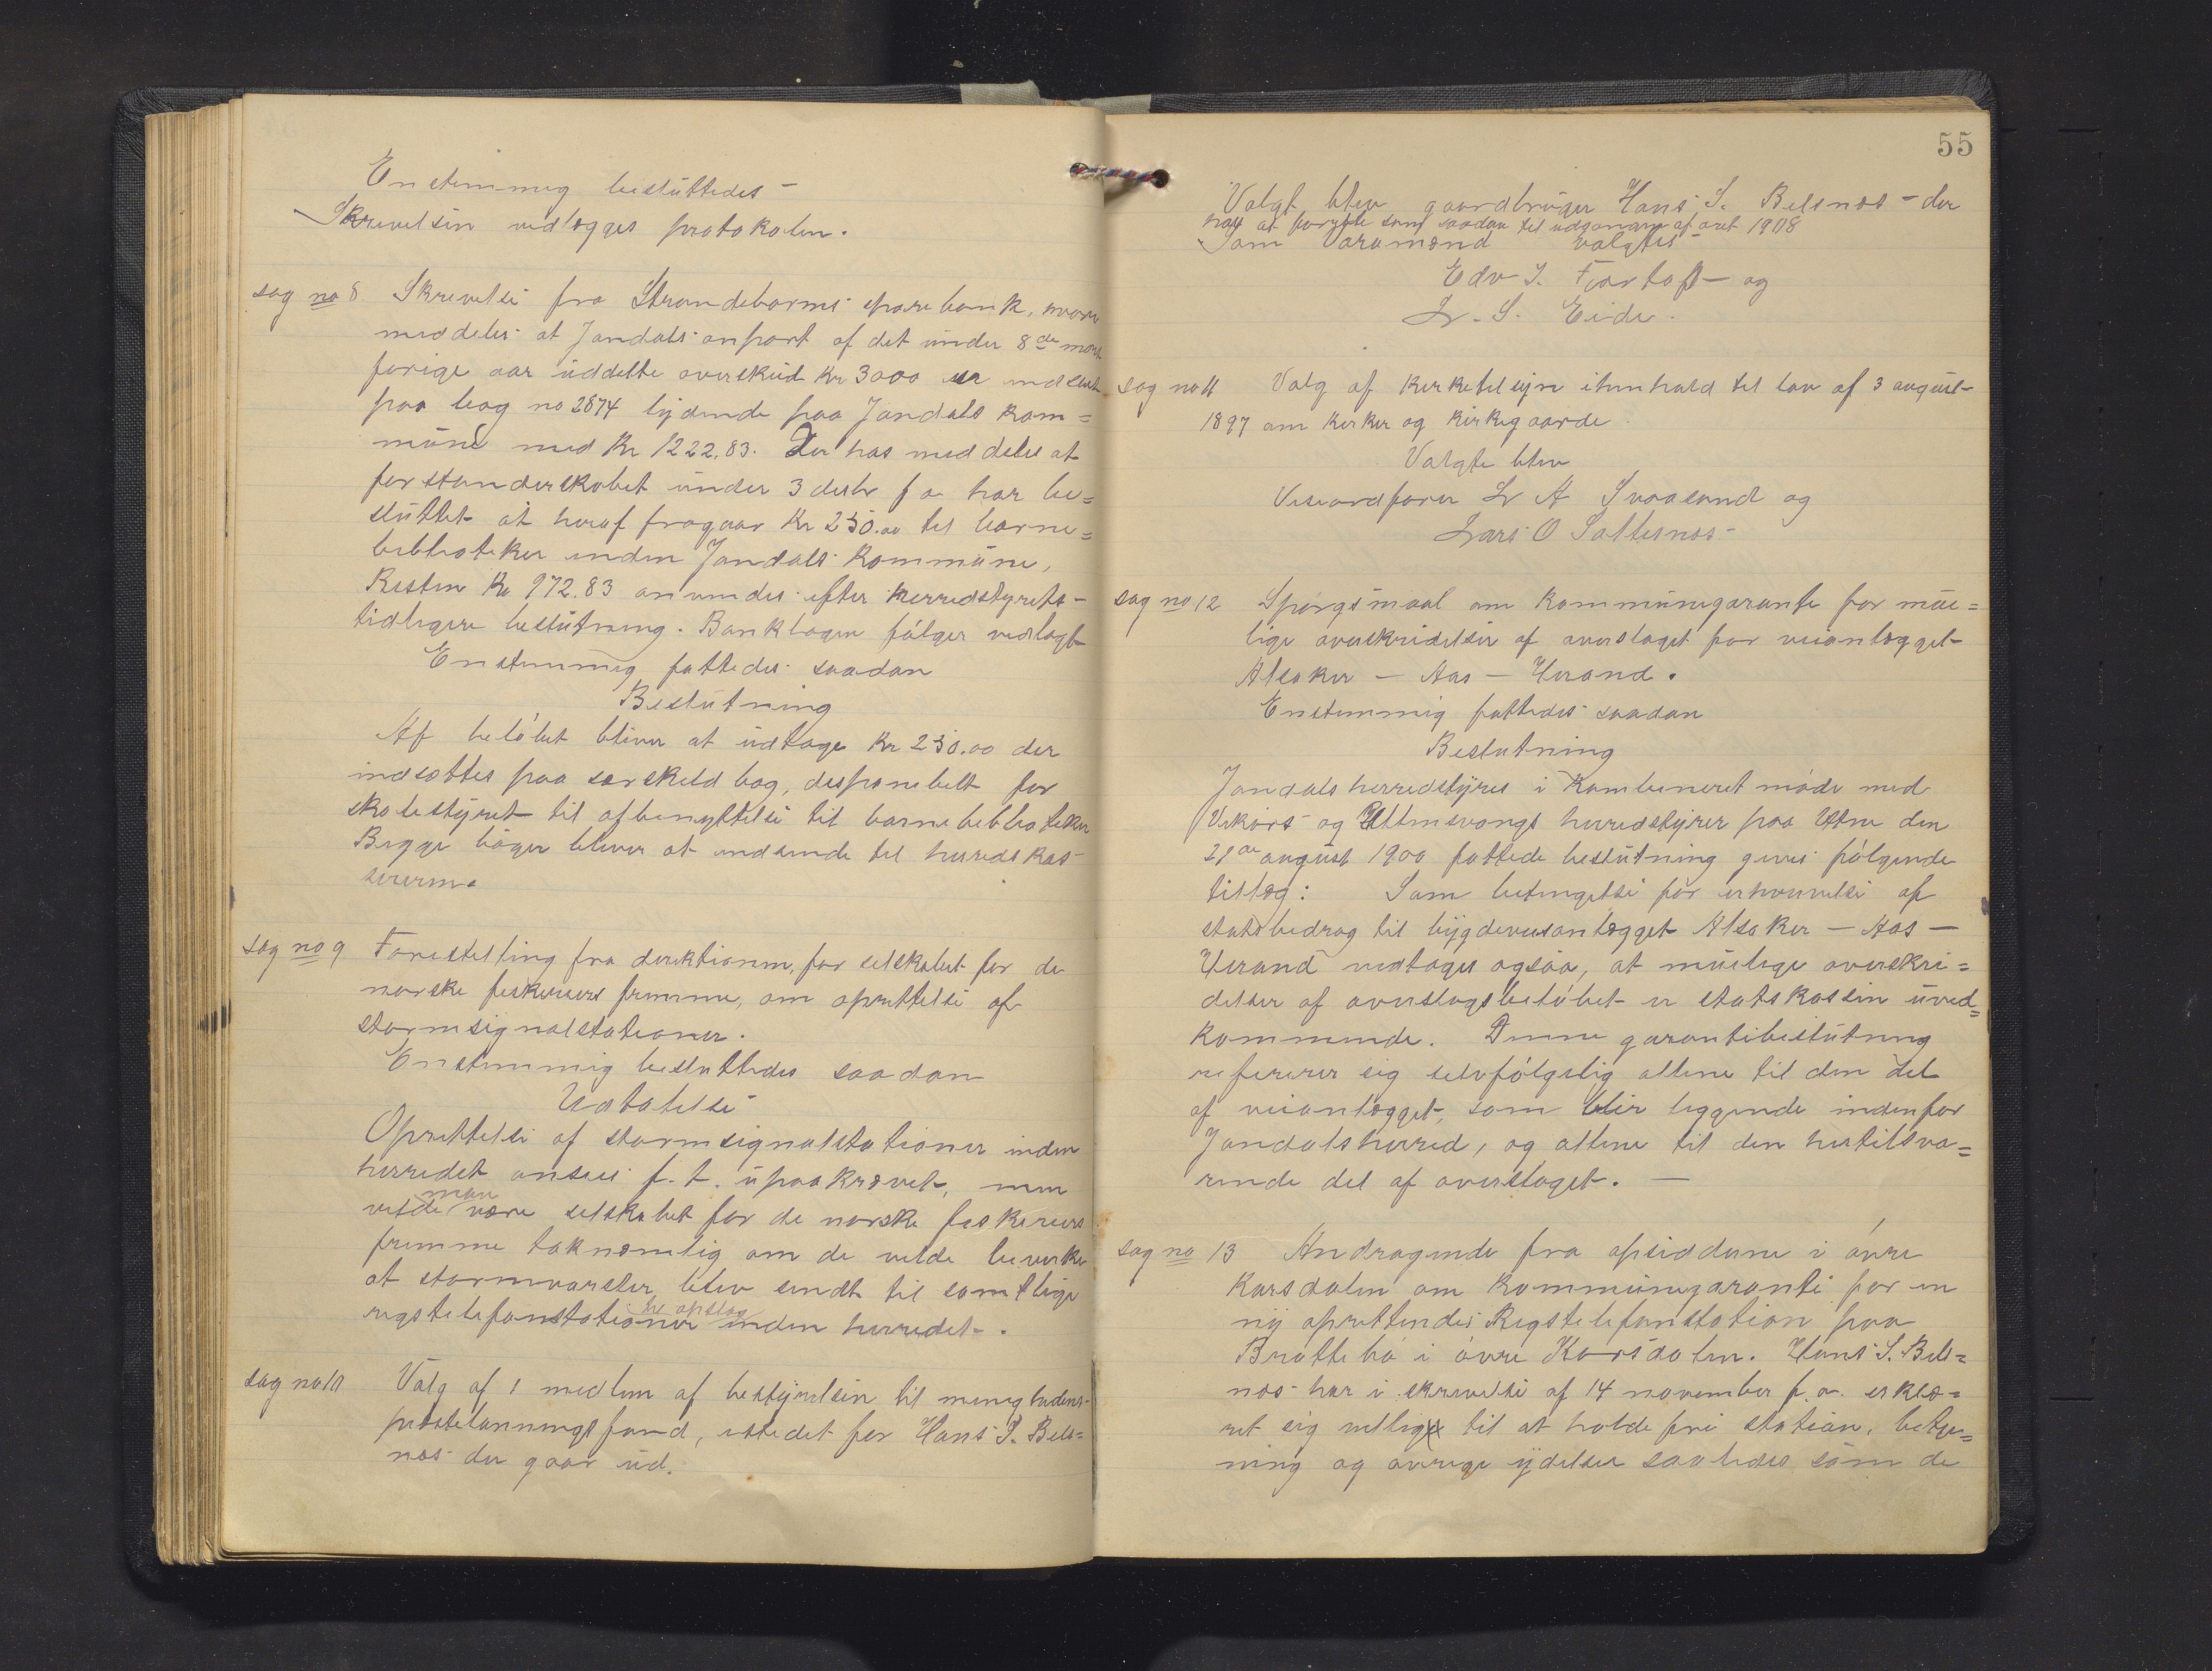 Enstemmig besluttedes
Skrivelsen vedlægges protokolen.
sag no 8 Skrivelse fra Strandebarms sparebank, hvori
meddeles at Jondals anpart af det under 8de mars
forige aar uddelte overskud kr 3000 er indsat
paa bog no 2874 lydende paa Jondals kom=
mune med kr 1222,83. Der hos meddeles at
forstanderskabet under 3 decbr f a har be=
sluttet at heraf fragaar kr 250.00 til barne=
biblioteker inden Jondals kommune,
Resten kr 972.83 anvendes efter herredstyrets
tidligere beslutning. Bankbogen følger vedlagt
Enstemmig fattedes saadan
Beslutning
Af beløbet bliver at udtage kr 250.00 der
indsættes paa særskeld bog, disponibelt for
skolestyret til afbenyttelse til barnebiblioteker
Begge bøger bliver at indsende til herredskas
sereren.
sag no 9 Forestelling fra direktionen, for selskabet for de
norske fiskeriers fremme, om oprettelse af
stormsignalstationer.
Enstemmig besluttedes saadan
Udtalelse
Oprettelse af stormsignalstationer inden
herredet ansees f. t. upaakrævet, men
man
vilde være selskabet for de norske fiskeriers
fremme taknemlig om de vilde bevirke
at stormvarsler blev sendt til samtlige
til opslag
rigstelefonstationer inden herredet.
sag no 10 Valg af 1 medlem af bestyrelsen til menighedens
præstelønningsfond, istedet for Hans S. Bels=
nes der gaar ud.
55
Valgt blev gaardbruger Hans S. Belsnes - der
har at fungere som saadan til udgangen af aaret 1908
Som varamænd valgtes
Edv S. Fjærtoft og
L. S. Eide.
sag no 11 Valg af kirketilsyn i henhold til lov af 3 august
1897 om kirker og kirkegaarde.
Valgte blev
Viseordfører L A Svaasand og
Lars O Saltesnes
sag no 12 Spørgsmaal om kommunegaranti for mue=
lige overskridelser af overslaget for veianlægget
Alsaker - Aas - Herand.
Enstemmig fattedes saadan
Beslutning
Jondals herredstyres i kombineret møde med
Vikørs og Ullensvangs herredstyrer paa Utne den
21de august 1900 fattede beslutning gives følgende
tillæg: Som betingelse for erhvervelse af
statsbedrag til bygdeveisanlægget Alsaker - Aas -
Herand vedtages ogsaa, at muelige overskri=
delser af overslagsbeløbet er statskassen uved=
kommende. Denne garantibeslutning
refererer sig selvfølgelig allene til den del
af veianlægget, som blir liggende indenfor
Jondals herred, og allene til den hertilsva=
rende del af overslaget. -
sag no 13 Andragende fra opsidderne i øvre
Karsdalen om kommunegaranti for en
ny oprettendes Rigstelefonstation paa
Brattebø i øvre Karsdalen. Hans S. Bels=
nes har i skrivelse af 14 november f. a. erklæ=
ret sig villig til at holde fri station, betje=
ning og øvrige ydelser saaledes som de